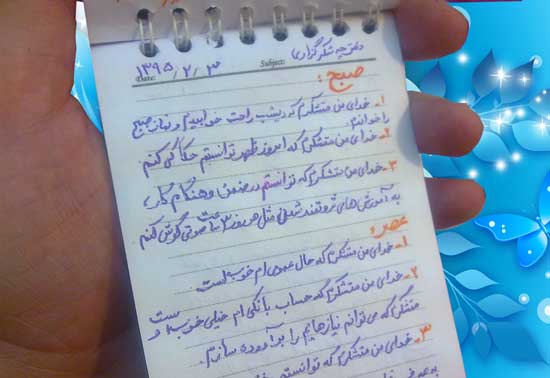 دفترچه شکرگزاری
Date: ۱۳۹۵/۲/۳ Subject:
صبح:
۱- خدای من متشکرم که دیشب راحت خوابیدم و نماز صبح
را خواندم.
۲- خدای من متشکرم که امروز ظهر توانستم حکاکی کنم
۳- خدای من متشکرم که توانستم در ضمن و هنگام کار
به آموزش های ثروتمند شدن مثل هر روز ۳ ساعت صوتی گوش کنم
عصر:
۱- خدای من متشکرم که حال عمومی ام خوب است.
۲- خدای من متشکرم که حساب بانکی ام خیلی خوب است و
متشکرم که می توانم نیازهایم را برآورده سازم.
۳- خدای من متشکرم که توانستم